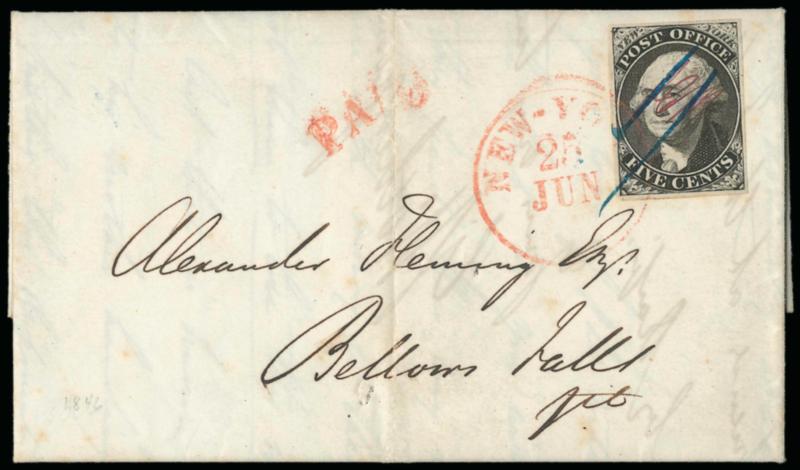 NEW YORK
POST OFFICE
FIVE CENTS
PAID
NEW-YO
25
JUN
Alexander Fleming Esq.
Bellows Falls
1846